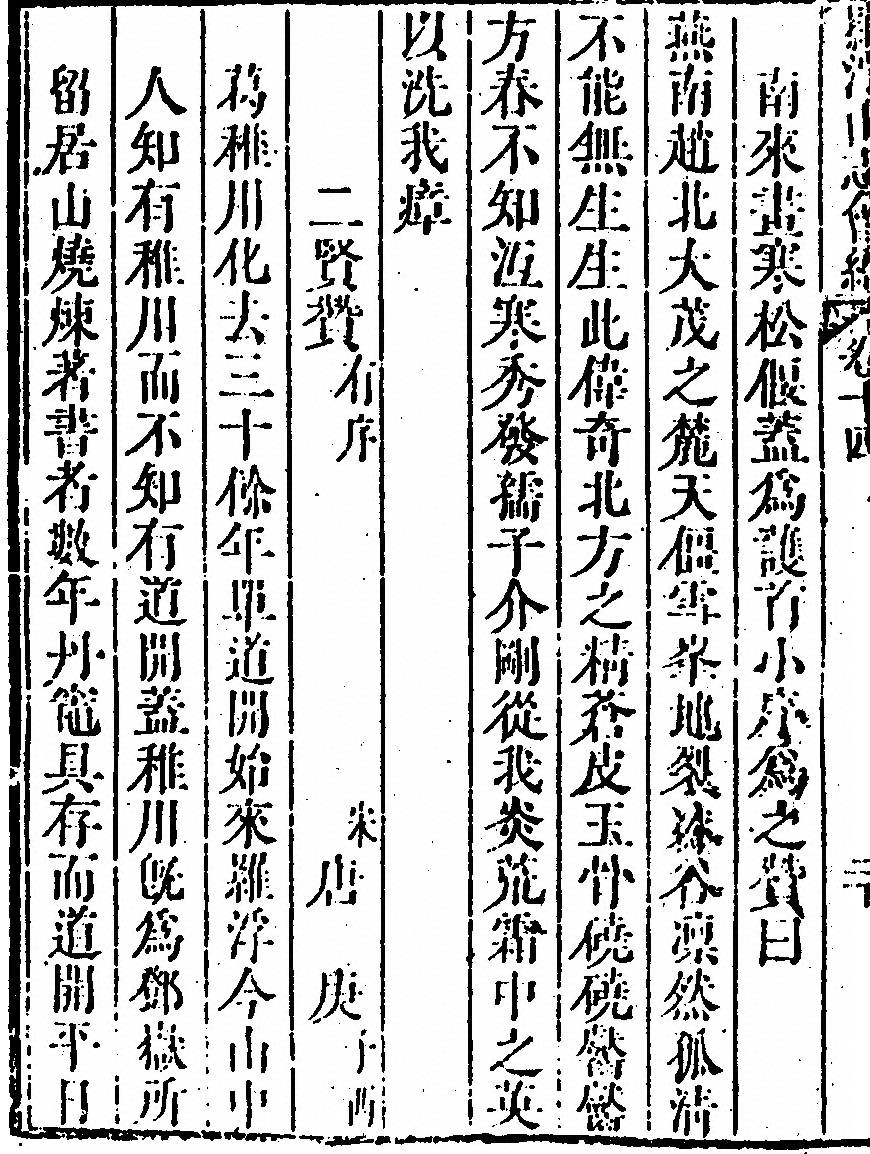 羅浮山志會編 卷十四 二十
南來畫寒松偃蓋爲護首小屏爲之贊曰
燕南趙北大茂之麓天僵雪峯地裂凍谷凛然孤淸
不能無生生此偉奇北方之精蒼皮玉骨磽磽㟼㟼
方春不知沍寒秀發孺子介剛從我炎荒霜中之英
以洗我瘴
二賢贊有序 宋唐庚子西
葛稚川化去三十餘年單道開始來羅浮今山中
人知有稚川而不知有道開蓋稚川旣爲鄧嶽所
留居山燒煉著書者數年丹竈具存而道開平日